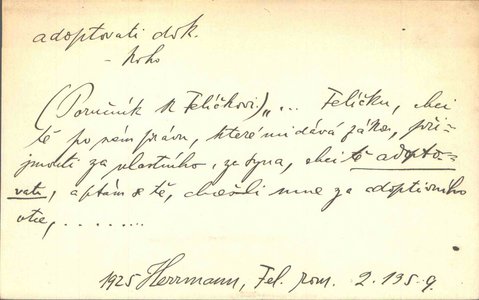 adoptovati dok.
– koho
(Poručník k Felíčkovi:) „... Felíčku, chci
tě po něm právu, které mi dává zákon, při-
jmouti za vlastního, za syna, chci tě adopto-
vati, a ptám se tě, chceš-li mne za adoptivního
otce, ........
1925 Herrmann, Fel. rom. 2. 195. q.